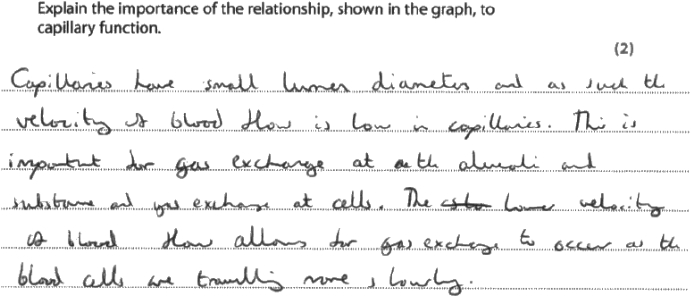 Explain the importance of the relationship, shown in the graph, to
capillary function.
(2)
Capillaries have small lumen diameters and as such the
velocity of blood flow is low in capillaries. This is
important for gas exchange at the alveoli and
substance and gas exchange at cells. The lower velocity
of blood flow allows for gas exchange to occur as the
blood cells are travelling more slowly.